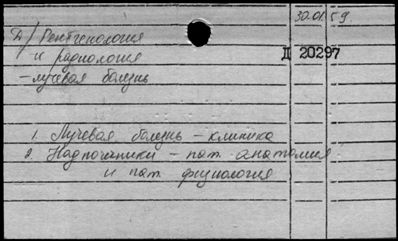 30.01.59.
Д) Рентгенология
и радиология
Д 20297
- лучевая болезнь
1. Лучевая болезнь - клиника
2. Надпочечники - пат. анатомия
и пат. физиология